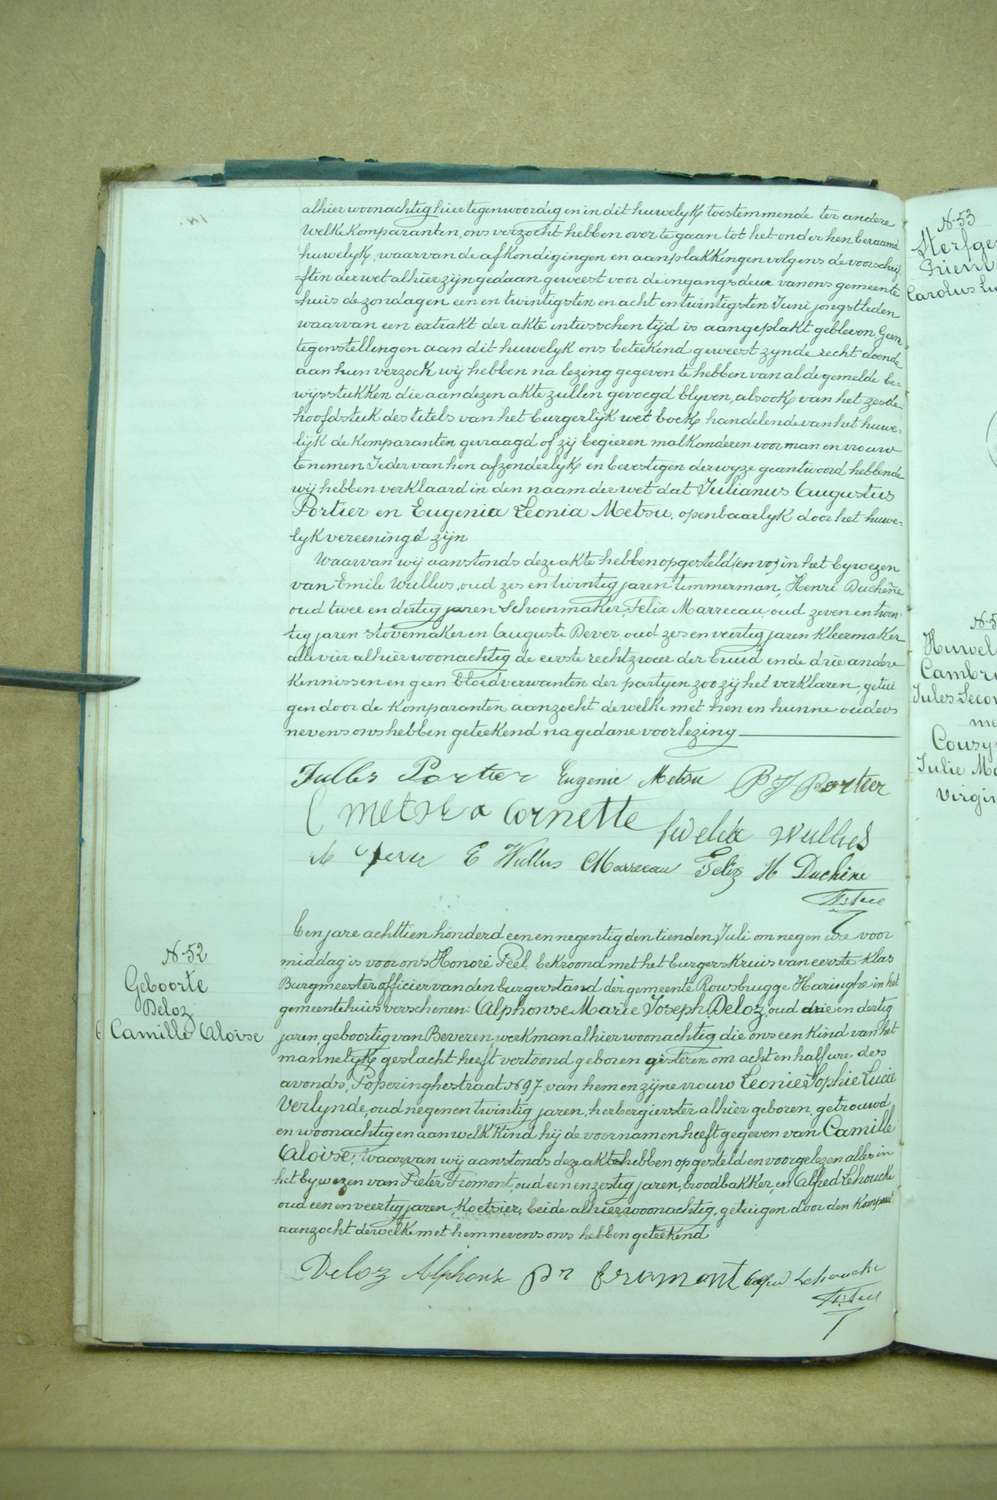 alhier woonachtig hier tegenwoordig en in dit huwelijk toestemmende ter andere
Welke Komparanten, ons verzocht hebben over te gaan tot het onder hen beraamd
huwelijk, waarvan de afkondigingen en aanplakkingen volgens de voorschrif
ften der wet alhier zijn gedaan geweest voor de ingangsdeur van ons gemeente
huis de zondagen een en twintigsten en acht en twintigsten Juni jongstleden
waarvan een extrakt der akte intusschen tijd is aangeplakt gebleven, Geen
tegenstellingen aan dit huwelyk ons beteekend geweest zynde recht doende
aan hun verzoek wij hebben na lezing gegeven te hebben van al de gemelde be-
wijsstukken die aan dezen akte zullen gevoegd blyven, alsook van het zesde
hoofdstuk des titels van het burgerlijk wet boek, handelende van het huwe-
lijk de Komparanten gevraagd of zij begieren malkanderen voor man en vrouw
te nemen Ieder van hen afzonderlijk en bevestigen derwyze geantwoord hebbende
wij hebben verklaard in den naam der wet dat Julianus Augustus
Portier en Eugenia Leonia Metsu, openbaarlyk door het huwe-
lyk vereenigd zijn
Waarvan wij aanstonds deze akte hebben opgesteld in het bywezen
van Emile Wullus, oud zes en twintig jaren timmerman, Henri Duchêne
oud twee en dertig jaren Schoenmaker, Felix Marrecau oud zeven en twin-
tig jaren stovemaker en Auguste Dever oud zes en veertig jaren Kleermaker
alle vier alhier woonachtig de eerste rechtzweer der bruid ende drie andre
Kennissen en geen bloedverwanten der partyen zoo zij het verklaren, getui
gen door de Komparanten aanzocht dewelke met hen en hunne ouders
nevens ons hebben geteekend na gedane voorlezing
Jules Portier Eugenie Metsu B J Portier
C Metsu Cornette Wullus
Dever E Wullus C Marrecau Feliz H Duchine
N-52
Geboorte
Deloz
Camille Aloise
Een jare achttien honderd een en negentig den tienden Juli om negen ure voor
middag is voor ons Honoré Peel bekroond met het burgerskruis van eerste klas
Burgmeester officier van den burgerstand der gemeente Rousbrugge Haringhe in het
gemeentehuis verschenen: Alphonse Marie Joseph Deloz, oud drie en dertig
jaren, geboortig van Beveren, werkman alhier woonachtig die ons een kind van het
mannelijk geslacht heeft vertoond geboren gisteren om acht en half ure des
avonds, Poperinghestraat N 97, van hem en zijne vrouw Leonie Sophie Lucie
Verlynde, oud negen en twintig jaren, herbergierster alhier geboren, getrouwd
en woonachtig en aan welk kind hij de voornamen heeft gegeven van Camille
Aloïse; Waarvan wij aanstonds deze akte hebben opgesteld en voorgelezen alles in
het bywezen van Pieter Fromont, oud een en zestig jaren, broodbakker en Alfred Lehoucke
oud een en veertig jaren, Koetsier, beide alhier woonachtig, getuigen door den Komparant
aanzocht dewelke met hem nevens ons hebben geteekend
Deloz Alphonse Pr Fromont Alfred Lehoucke
N-53
Sterfge
Carolus Lu
Huwel
Cambr
Jules Secon
me
Couzy
Julie Ma
Virgin